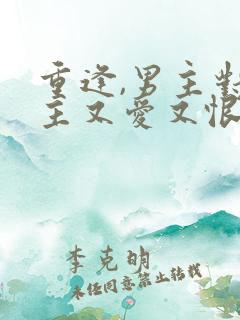 重逢,男主對
主又愛又恨
李克明
未经同意禁止转载